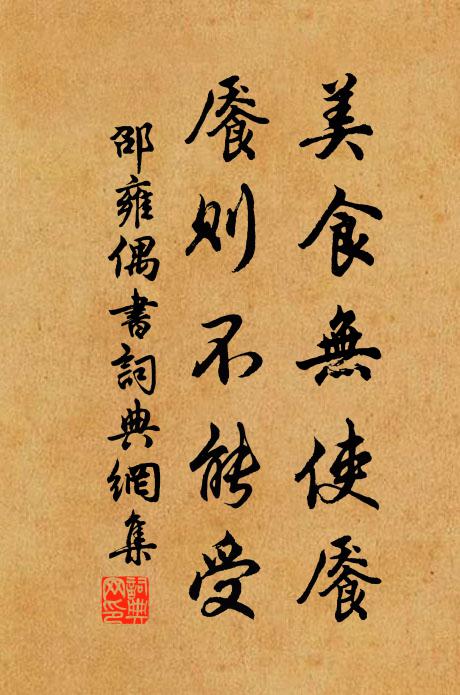 美食無使餍
餍則不能受
邵雍偶書詞典網集
詞典网印